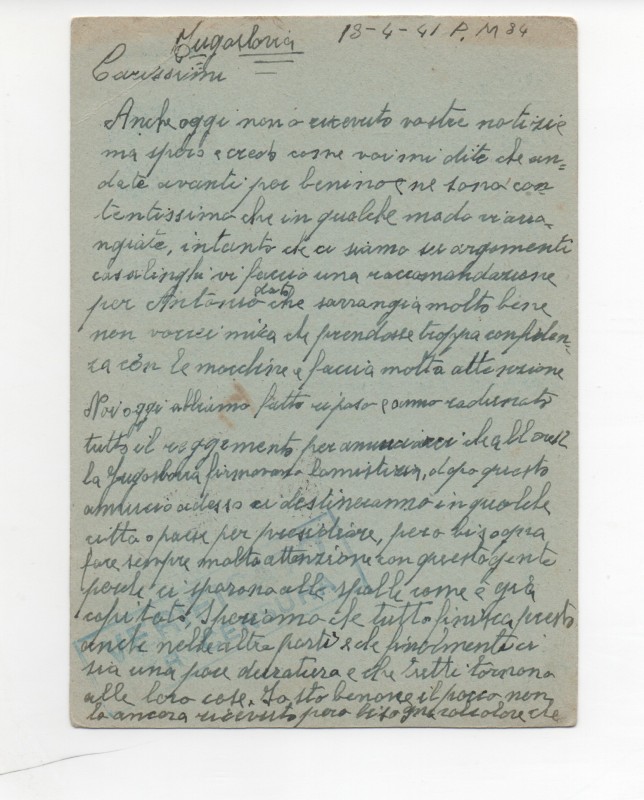 Jugoslovia 18-4-41 P.M 84
Carissimi
Anche oggi non o ricevuto vostre notizie
ma spero e credo come voi mi dite che an-
date avanti per benino e ne sono con-
tentissimo che in qualche modo vi arra-
ngiate, intanto che ci siamo su argomenti
casalinghi vi faccio una raccomandazione
per Antonio dato che sarrangia molto bene
non vorrei mica che prendesse troppa confiden-
za con le macchine e faccia molta attenzione
Noi oggi abbiamo fatto riposo e anno radunato
tutto il reggemento per anunciarci che alle ore 12
la Jugoslovia firmavano lamistizia, dopo questo
anuncio adesso ci destineranno in qualche
citta o paese per presidiare, pero bisogna
fare sempre molta attenzione con questa gente
perche ci sparono alle spalle come è già
capitato, Speriamo che tutto finisca presto
anche nelle altre parti e che finalmente ci
sia una pace duratura e che tutti tornono
alle loro case. Io sto benone il pacco non
lo ancora ricevuto pero bisogna calcolare che
VERIFICATO CENSURA